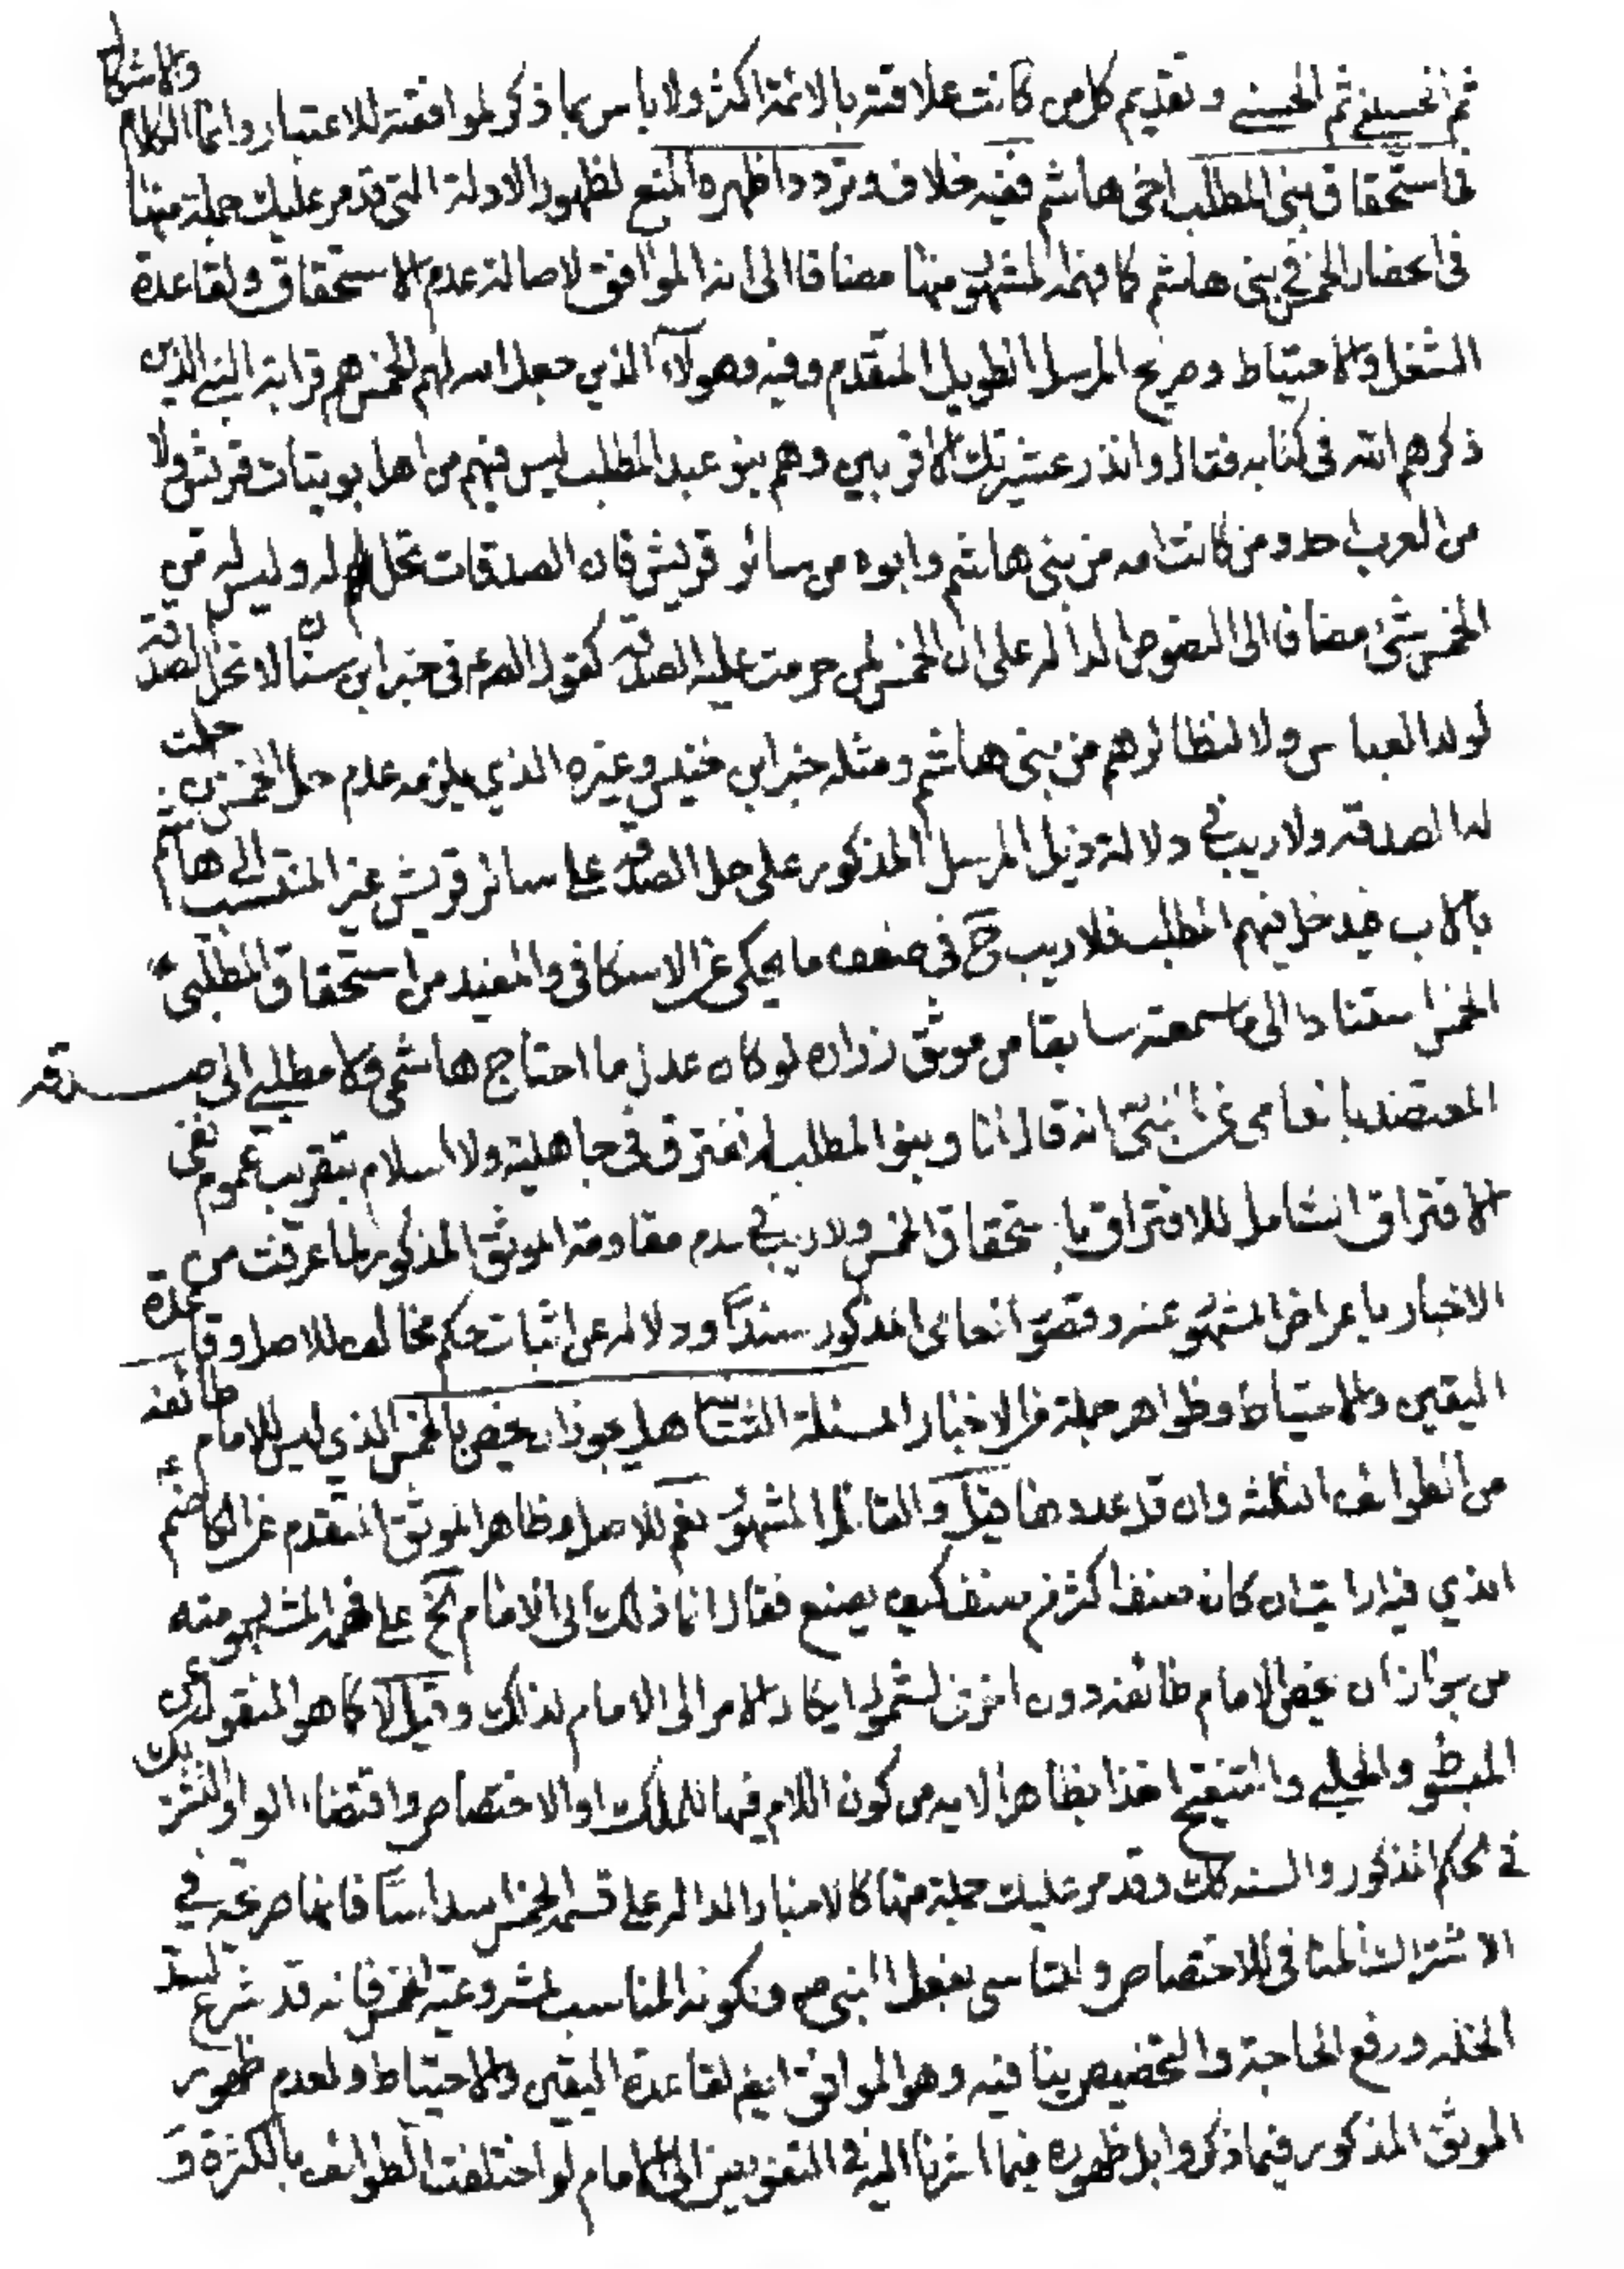 ثم الحسيني ثم الحسني و تقديم كل من كانت علاقته بالائمة اكثر ولا باس بما ذكر لموافقته للاعتبار وانما الكلام والاشكال
فى استحقاق بنى المطلب اخى هاشم ففيه خلاف وتردد اظهره المنع لظهور الادلة التى قد مر عليك جملة منها
فى انحصار الخمس في بنى هاشم كما فهمه المشهور منها مضافا الى انه الموافق لاصالة عدم الاستحقاق ولقاعدة
الشغل والاحتياط وصريح المرسل الطويل المتقدم وفيه وهولاء الذين جعل الله لهم الخمس هم قرابة النبي الذين
ذكرهم الله فى كتابه فقال وانذر عشيرتك الاقربين وهم بنو عبد المطلب ليس فيهم من اهل بويتات قريش ولا
من العرب احد ومن كانت امه من بنى هاشم وابوه من سائر قريش فان الصدقات تحل له وليس له من
الخمس شئ مضافا الى النصوص الدالة على ان الخمس لمن حرمت عليه الصدقة كقول الصم فى خبر ابن سنان لا تحل الصدقة
لولد العباس ولا لنظائرهم من بنى هاشم ومثله خبر ابن خنيس وغيره الذي يلزمه عدم حل الخمس لمن حلت
له الصدقة ولا ريب في دلالة ذيل المرسل المذكور على حل الصدقة على سائر قريش غير المنتسب الى هاشم
بالاب فيدخل فيهم المطلب فلا ريب ح فى ضعف ما يحكى عن الاسكافى والمفيد من استحقاق المطلبى
الخمس استنادا الى ما سمعته سابقا من موثق زراره لو كان عدل ما احتاج هاشمى ولا مطلبي الى صدقه
المعتضد بالعامى عن النبى انه قال انا وبنو المطلب لم نفترق فى جاهلية ولا اسلام بتقريب عموم نفى
الافتراق الشامل للافتراق باستحقاق الخمس ولا ريب في عدم مقاومة الموثق المذكور لما عرفت من
الاخبار باعراض المشهور عنه وقصور العامى المذكور سندا ودلالة عن اثبات حكم مخالف للاصل وقاعدة
اليقين والاحتياط وظواهر جملة من الاخبار المسئلة الثالثة هل يجوز ان يخص بالخمس الذي ليس للامام طائفه
من الطوائف الثلثه وان قل عددها قيل والقائل المشهور نعم للاصل وظاهر الموثق المتقدم عن الكاظم
الذي فيه ارايت ان كان صنف اكثر من صنف كيف يصنع فقال انما ذلك الى الامام الخ على فهم المشهور منه
من جواز ان يخص الامام طائفه دون اخرى لشمول ايكال الامر الى الامام لذلك وقيل لا كما هو المنقول عن
المبسوط والحلبي والتنقيح اخذا بظاهر الايه من كون اللام فيها للملك او الاختصاص واقتضاء الواو التشريك
في الحكم المذكور والسنه كك وقد مر عليك جملة منها كالاخبار الدالة على قسمة الخمس اسداسا فانها صريحة في
الاشتراك المنافى للاختصاص والتاسى بفعل النبى ص وبكونه المناسب لمشروعية الخمس فانه قد شرع لسد
الخله ورفع الحاجة والتخصيص ينافيه وهو الموافق ايضا لقاعدة اليقين والاحتياط ولعدم ظهور
الموثق المذكور فيما ذكروا بل ظهوره فيما اشرنا اليه فى التفويض الى الامام لو اختلفت الطوائف بالكثرة و